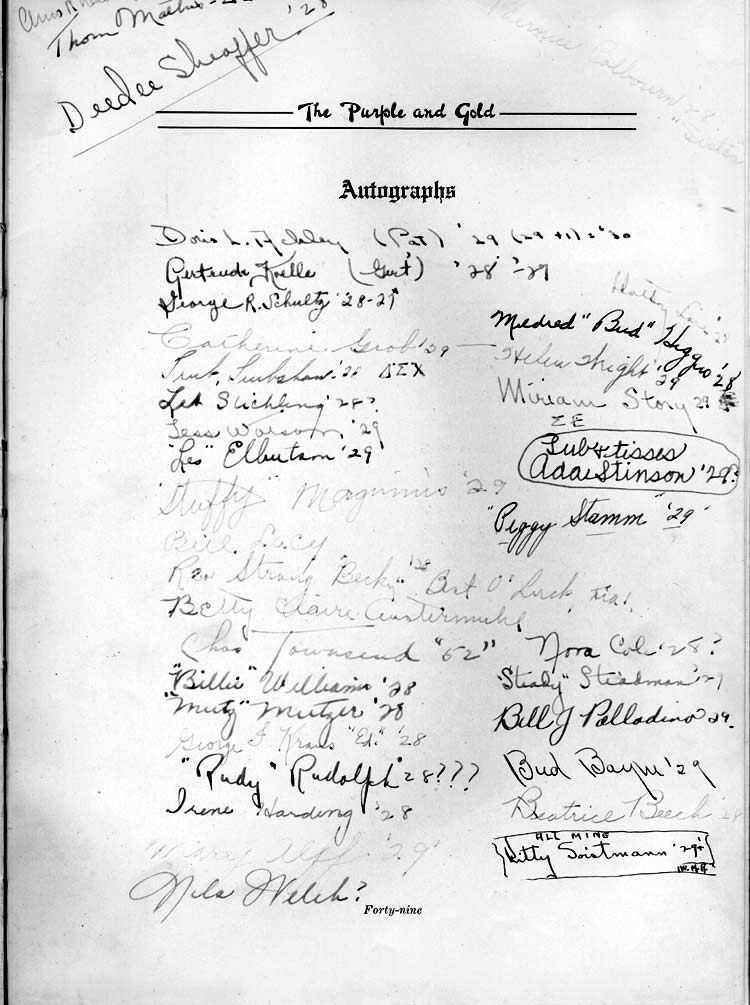 Thom
Deedee Sheaffer '28
The Purple and Gold
Autographs
Doris L. (Pat) '29 (29 + 1) = '30
Gertrude Koelle (Gert) '28 - 29
George R. Schultz '28-29
Catherine Grob '29
'28 ΔΣΧ
Stichling '28?
Tess '29
"Les" '29
"Stuffy" Maginnis '29
Bill Lacy
Rea Strong "Becky" '28 Best O' Luck
Betty Claire Austermuhl
Chas Townsend "52"
"Billie" Williams '28
"Mutz" Mutzer '28
George F. Kraus "Ed." '28
"Rudy" Rudolph '28???
Irene Harding '28
Mary '29
Nila Welch?
Mildred "Bud" Higgins '28
Helen Wright '29
Miriam Story 29
ΣΕ
Ada Stinson '29?
"Peggy Stamm" '29'
Nora Cole '28?
"Steady" Steadman '29
Bill J Palladino 29.
Bud Baym '29
Beatrice Beech '28
ALL MINE
Kitty Soistmann '29
W.H.R.
Forty-nine